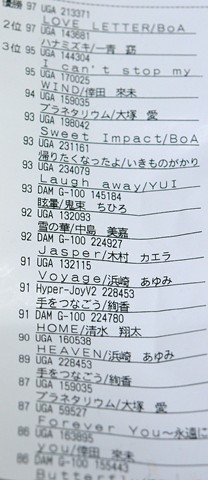 優勝 97 UGA 213371
LOVE LETTER/BoA
2位 97 UGA 143681
ハナミズキ/一青 窈
3位 95 UGA 144304
I can't stop my
95 UGA 170025
WIND/倖田 來未
94 UGA 159035
プラネタリウム/大塚 愛
93 UGA 198042
Sweet Impact/BoA
93 UGA 231161
帰りたくなったよ/いきものがかり
93 UGA 234079
Laugh away/YUI
93 DAM G-100 145184
眩暈/鬼束 ちひろ
92 UGA 132093
雪の華/中島 美嘉
92 DAM G-100 224927
Jasper/木村 カエラ
91 UGA 132115
Voyage/浜崎 あゆみ
91 Hyper-JoyV2 228453
手をつなごう/絢香
91 DAM G-100 224780
HOME/清水 翔太
90 UGA 160538
HEAVEN/浜崎 あゆみ
89 UGA 228453
手をつなごう/絢香
87 UGA 159035
プラネタリウム/大塚 愛
87 UGA 59527
Forever You〜永遠に
86 UGA 163895
you/倖田 來未
86 DAM G-100 155443
Butterfl